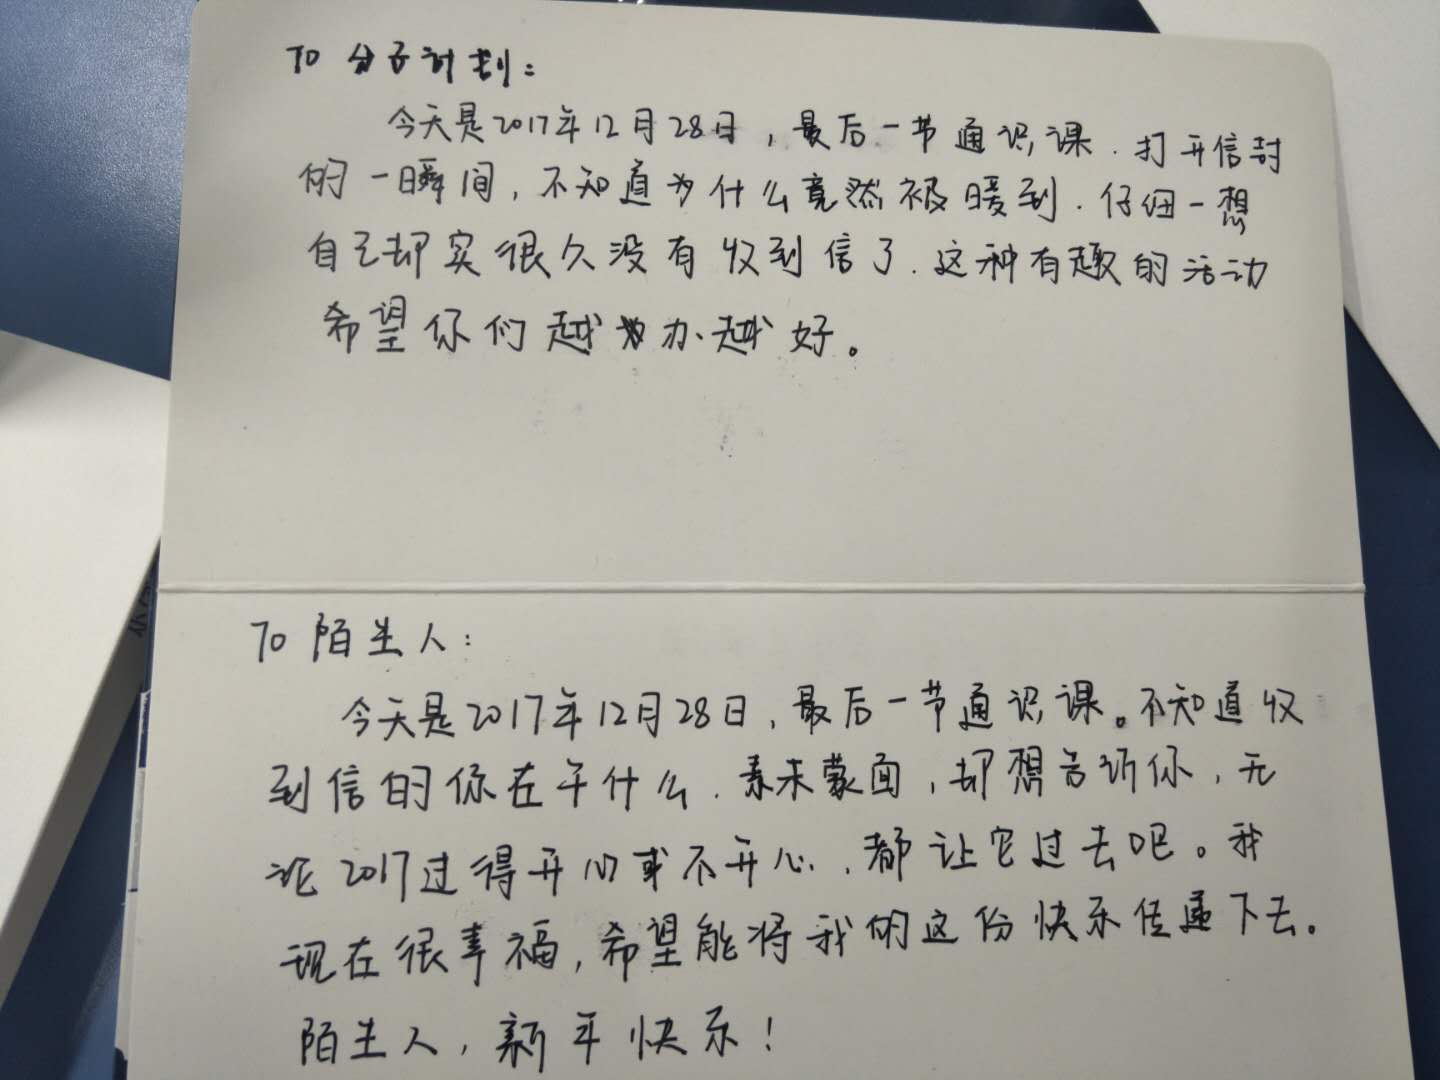 TO 分子计划:
今天是2017年12月28日，最后一节通识课.打开信封
的一瞬间，不知道为什么竟然被暖到.仔细一想
自己却实很久没有收到信了.这种有趣的活动
希望你们越办越好。
TO 陌生人:
今天是2017年12月28日，最后一节通识课。不知道收
到信的你在干什么.素未蒙面，却想告诉你，无
论2017过得开心或不开心，都让它过去吧。我
现在很幸福，希望能将我的这份快乐传递下去。
陌生人，新年快乐！